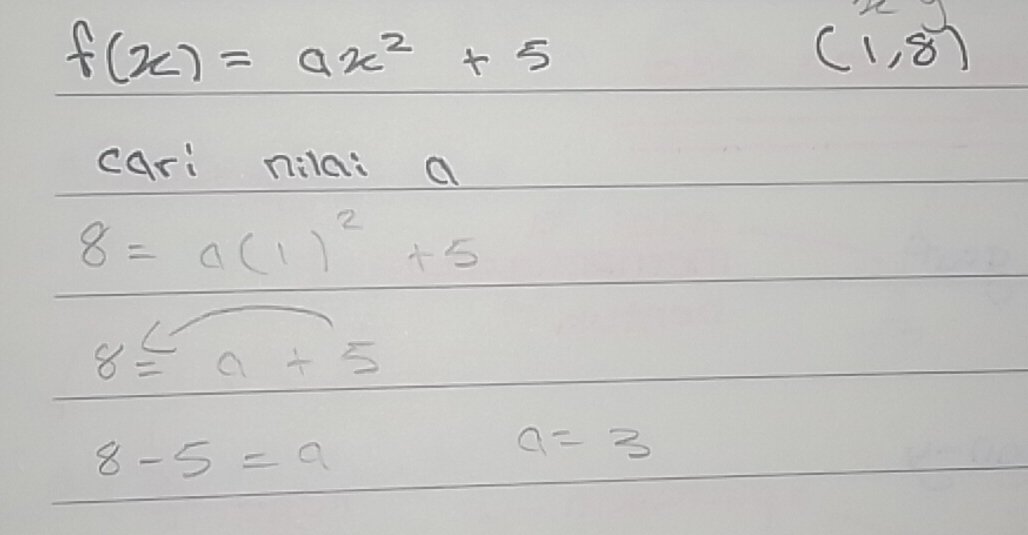 x y
f(x) = ax² + 5 (1,8)
cari nilai a
8 = a(1)² + 5
8 = a + 5
8 - 5 = a a = 3